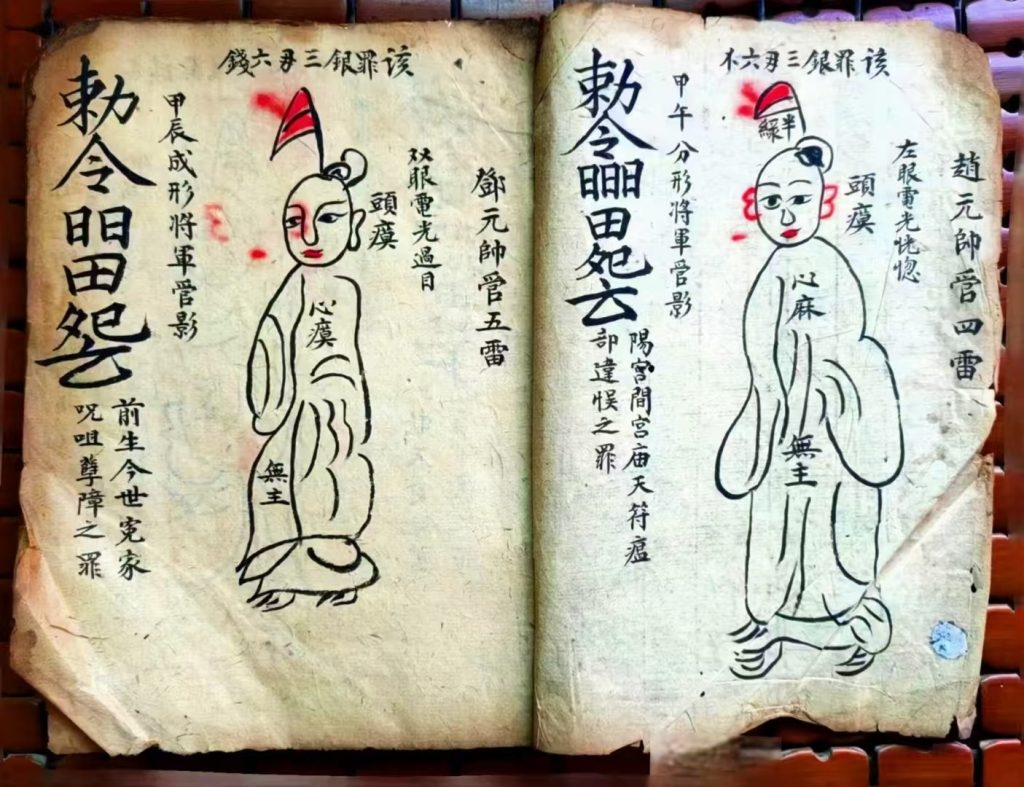 该罪銀三毋六不
趙元帥管四雷
左眼電光恍惚
頭瘼
半
綠
心麻
無主
甲午分形將軍管影
勅令
田
陽宮間宫庙天符瘟
部違悮之罪
该罪銀三毋六錢
鄧元帥管五雷
双眼電光過目
頭瘼
心瘼
無主
甲辰成形將軍管影
勅令
田
前生今世寃家
呪咀孽障之罪